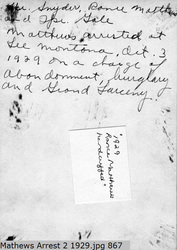 Mr. Snyder, Ronnie Matthews
and Mr. Gale
Matthews arrested at
Lee Montana, Oct. 3
1929 on a charge of
Abandonment, burglary
and Grand Larceny.
"1929
Ronnie Matthews
Handcuffed"
Mathews Arrest 2 1929.jpg 867